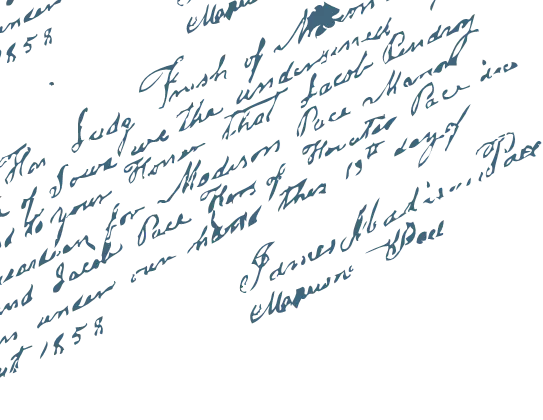 1858
Hon Judg Frush of
of Iowa we the undersined
to your Honor that Jacob Pendroy
for Madison Pace Marion
and Jacob Pace Hars of Horatio Pace
under our hand this 19th day of
1858
James Madison Pace
Marion Pace